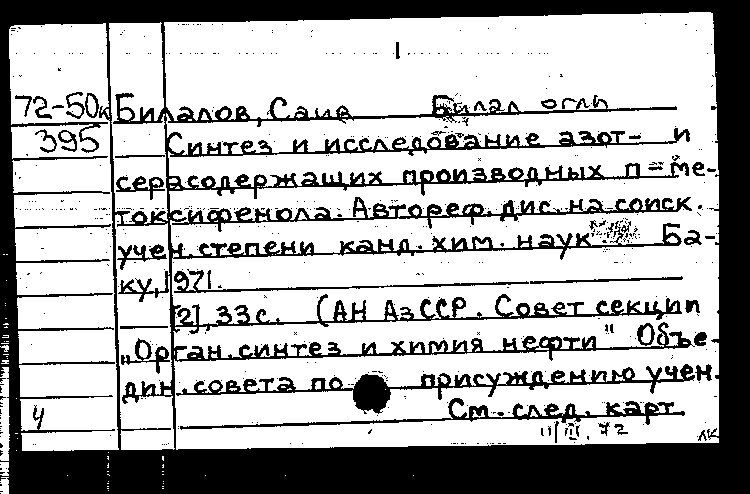 1
72-50к Билалов, Саив Билал оглы
395 Синтез и исследование азот- и
серасодержащих производных п=ме-
токсифенола. Автореф. дис. на соиск.
учен. степени канд. хим. наук Ба-
ку, 1971.
[2], 33 с. (АН АзССР. Совет секции
„Орган. синтез и химия нефти" Объе-
дин. совета по присуждению учен.
4 См. след. карт.
11/III. 72 ЛК